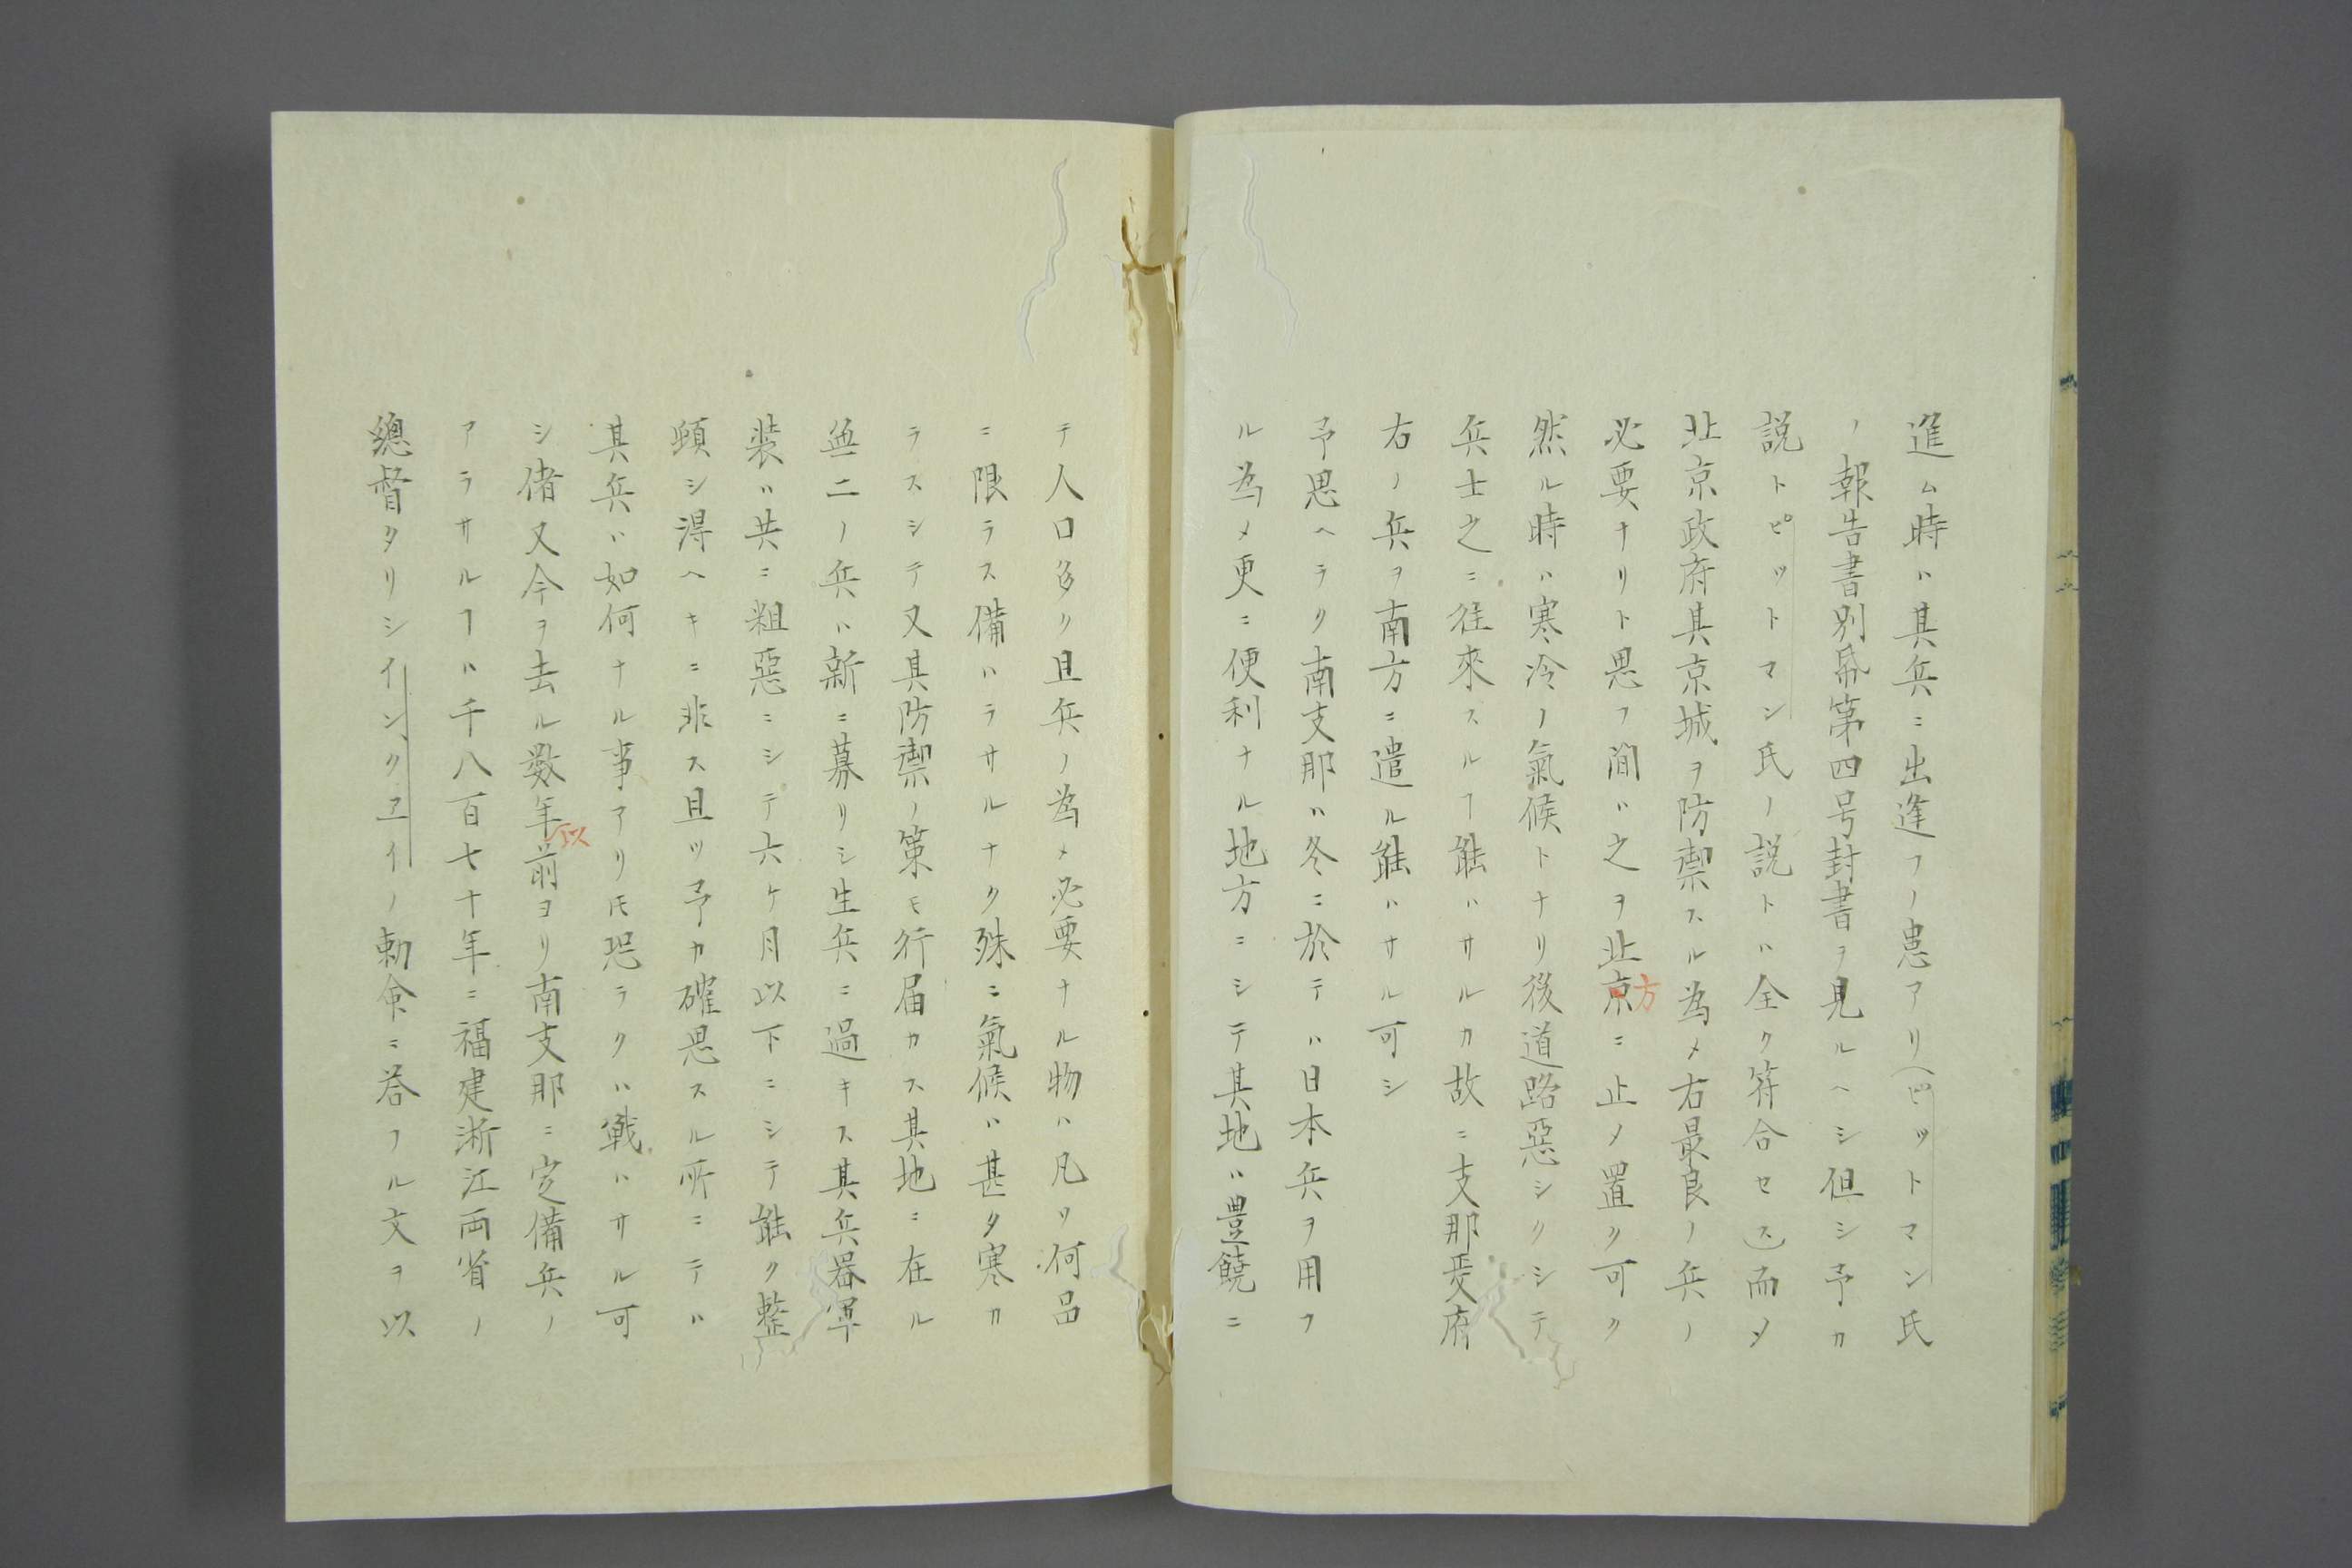 進ム時ハ其兵ニ出逢フノ患アリ(ピットマン氏
ノ報告書別帋第四号封書ヲ見ルヘシ但シ予カ
説トピットマン氏ノ説トハ全ク符合セス)而メ
北京政府其京城ヲ防禦スル為メ右最良ノ兵ノ
必要ナリト思フ間ハ之ヲ北京方ニ止メ置ク可ク
然ル時ハ寒冷ノ氣候トナリ後道路惡シクシテ
兵士之ニ往來スルヿ能ハサルカ故ニ支那政府
右ノ兵ヲ南方ニ遣ル能ハサル可シ
予思ヘラク南支那ハ冬ニ於テハ日本兵ヲ用フ
ル為メ更ニ便利ナル地方ニシテ其地ハ豊饒ニ
テ人口多ク且兵ノ為メ必要ナル物ハ凡ソ何品
ニ限ラス備ハラサルナク殊ニ氣候ハ甚タ寒カ
ラスシテ又其防禦ノ策モ行届カス其地ニ在ル
無二ノ兵ハ新ニ募リシ生兵ニ過キス其兵器軍
装ハ共ニ粗惡ニシテ六ケ月以下ニシテ能ク整
頓シ得ヘキニ非ス且ツ予カ確思スル所ニテハ
其兵ハ如何ナル事アリ𪜈恐ラクハ戦ハサル可
シ偖又今ヲ去ル数年以前ヨリ南支那ニ定備兵ノ
アラサルヿハ千八百七十年ニ福建浙江両省ノ
總督タリシインクエイノ勅命ニ荅フル文ヲ以